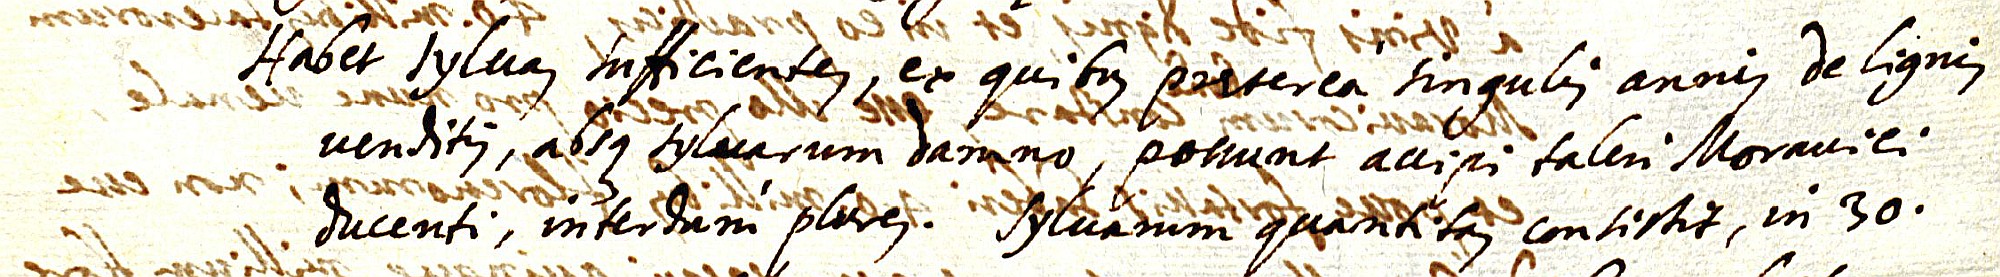 Habet sylvas sufficientes, ex quibus præterea singulis annis de lignis
venditis, absq sylvarum damno, possunt accipi taleri Moravici
ducenti, interdum plures. Sylvarum quantitas consistit, in 30.